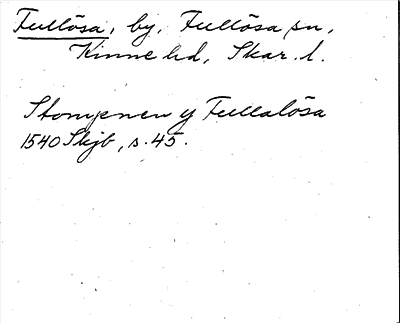 Fullösa, by, Fullösa sn,
Kinne hd, Skar. l.
Stompnen y Fullalösa
1540 Skjb, s. 45.